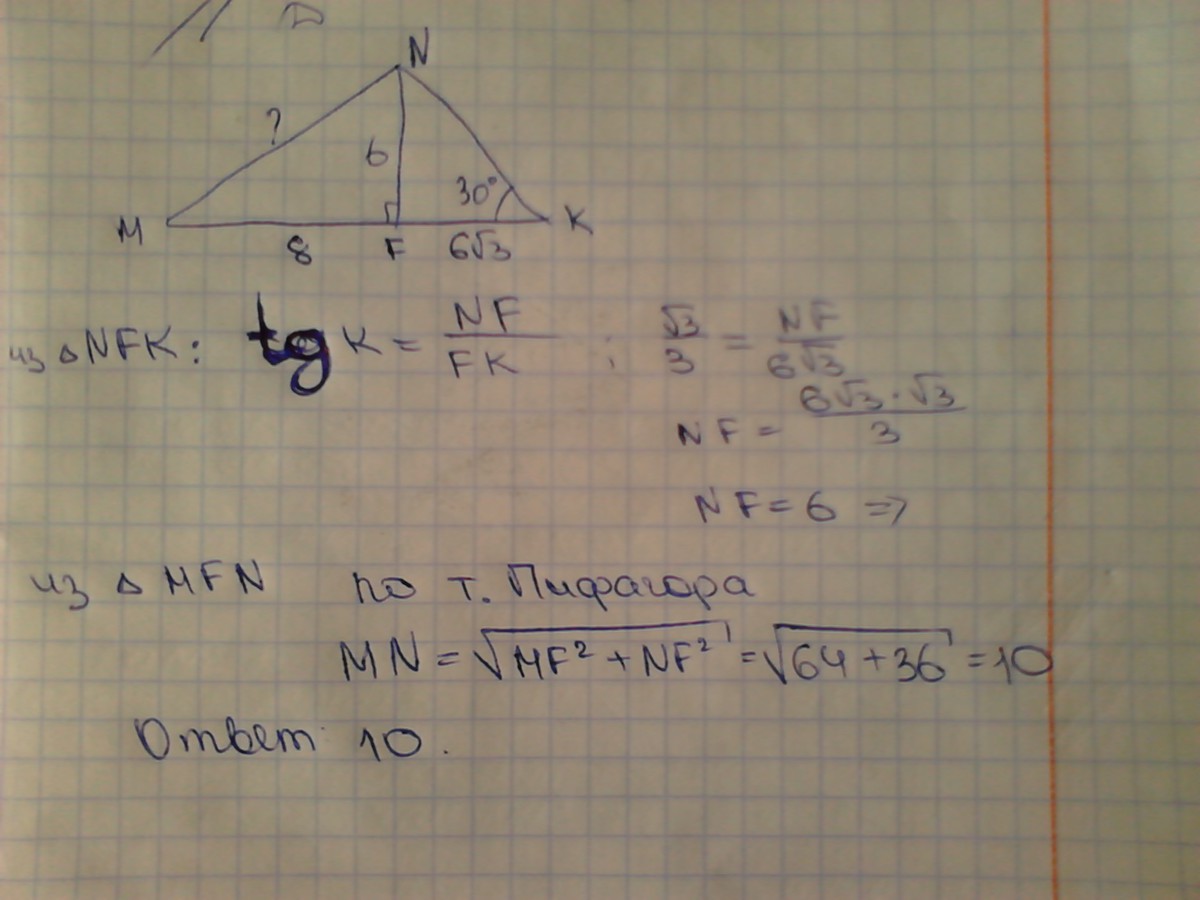 N
?
6
30°
M
8
F
6√3
K
из △ NFK: tg K = NF/FK ; √3/3 = NF/6√3
NF = 6√3·√3/3
NF = 6 =>
из △ MFN по т. Пифагора
MN = √MF² + NF² = √64 + 36 = 10
Ответ: 10.